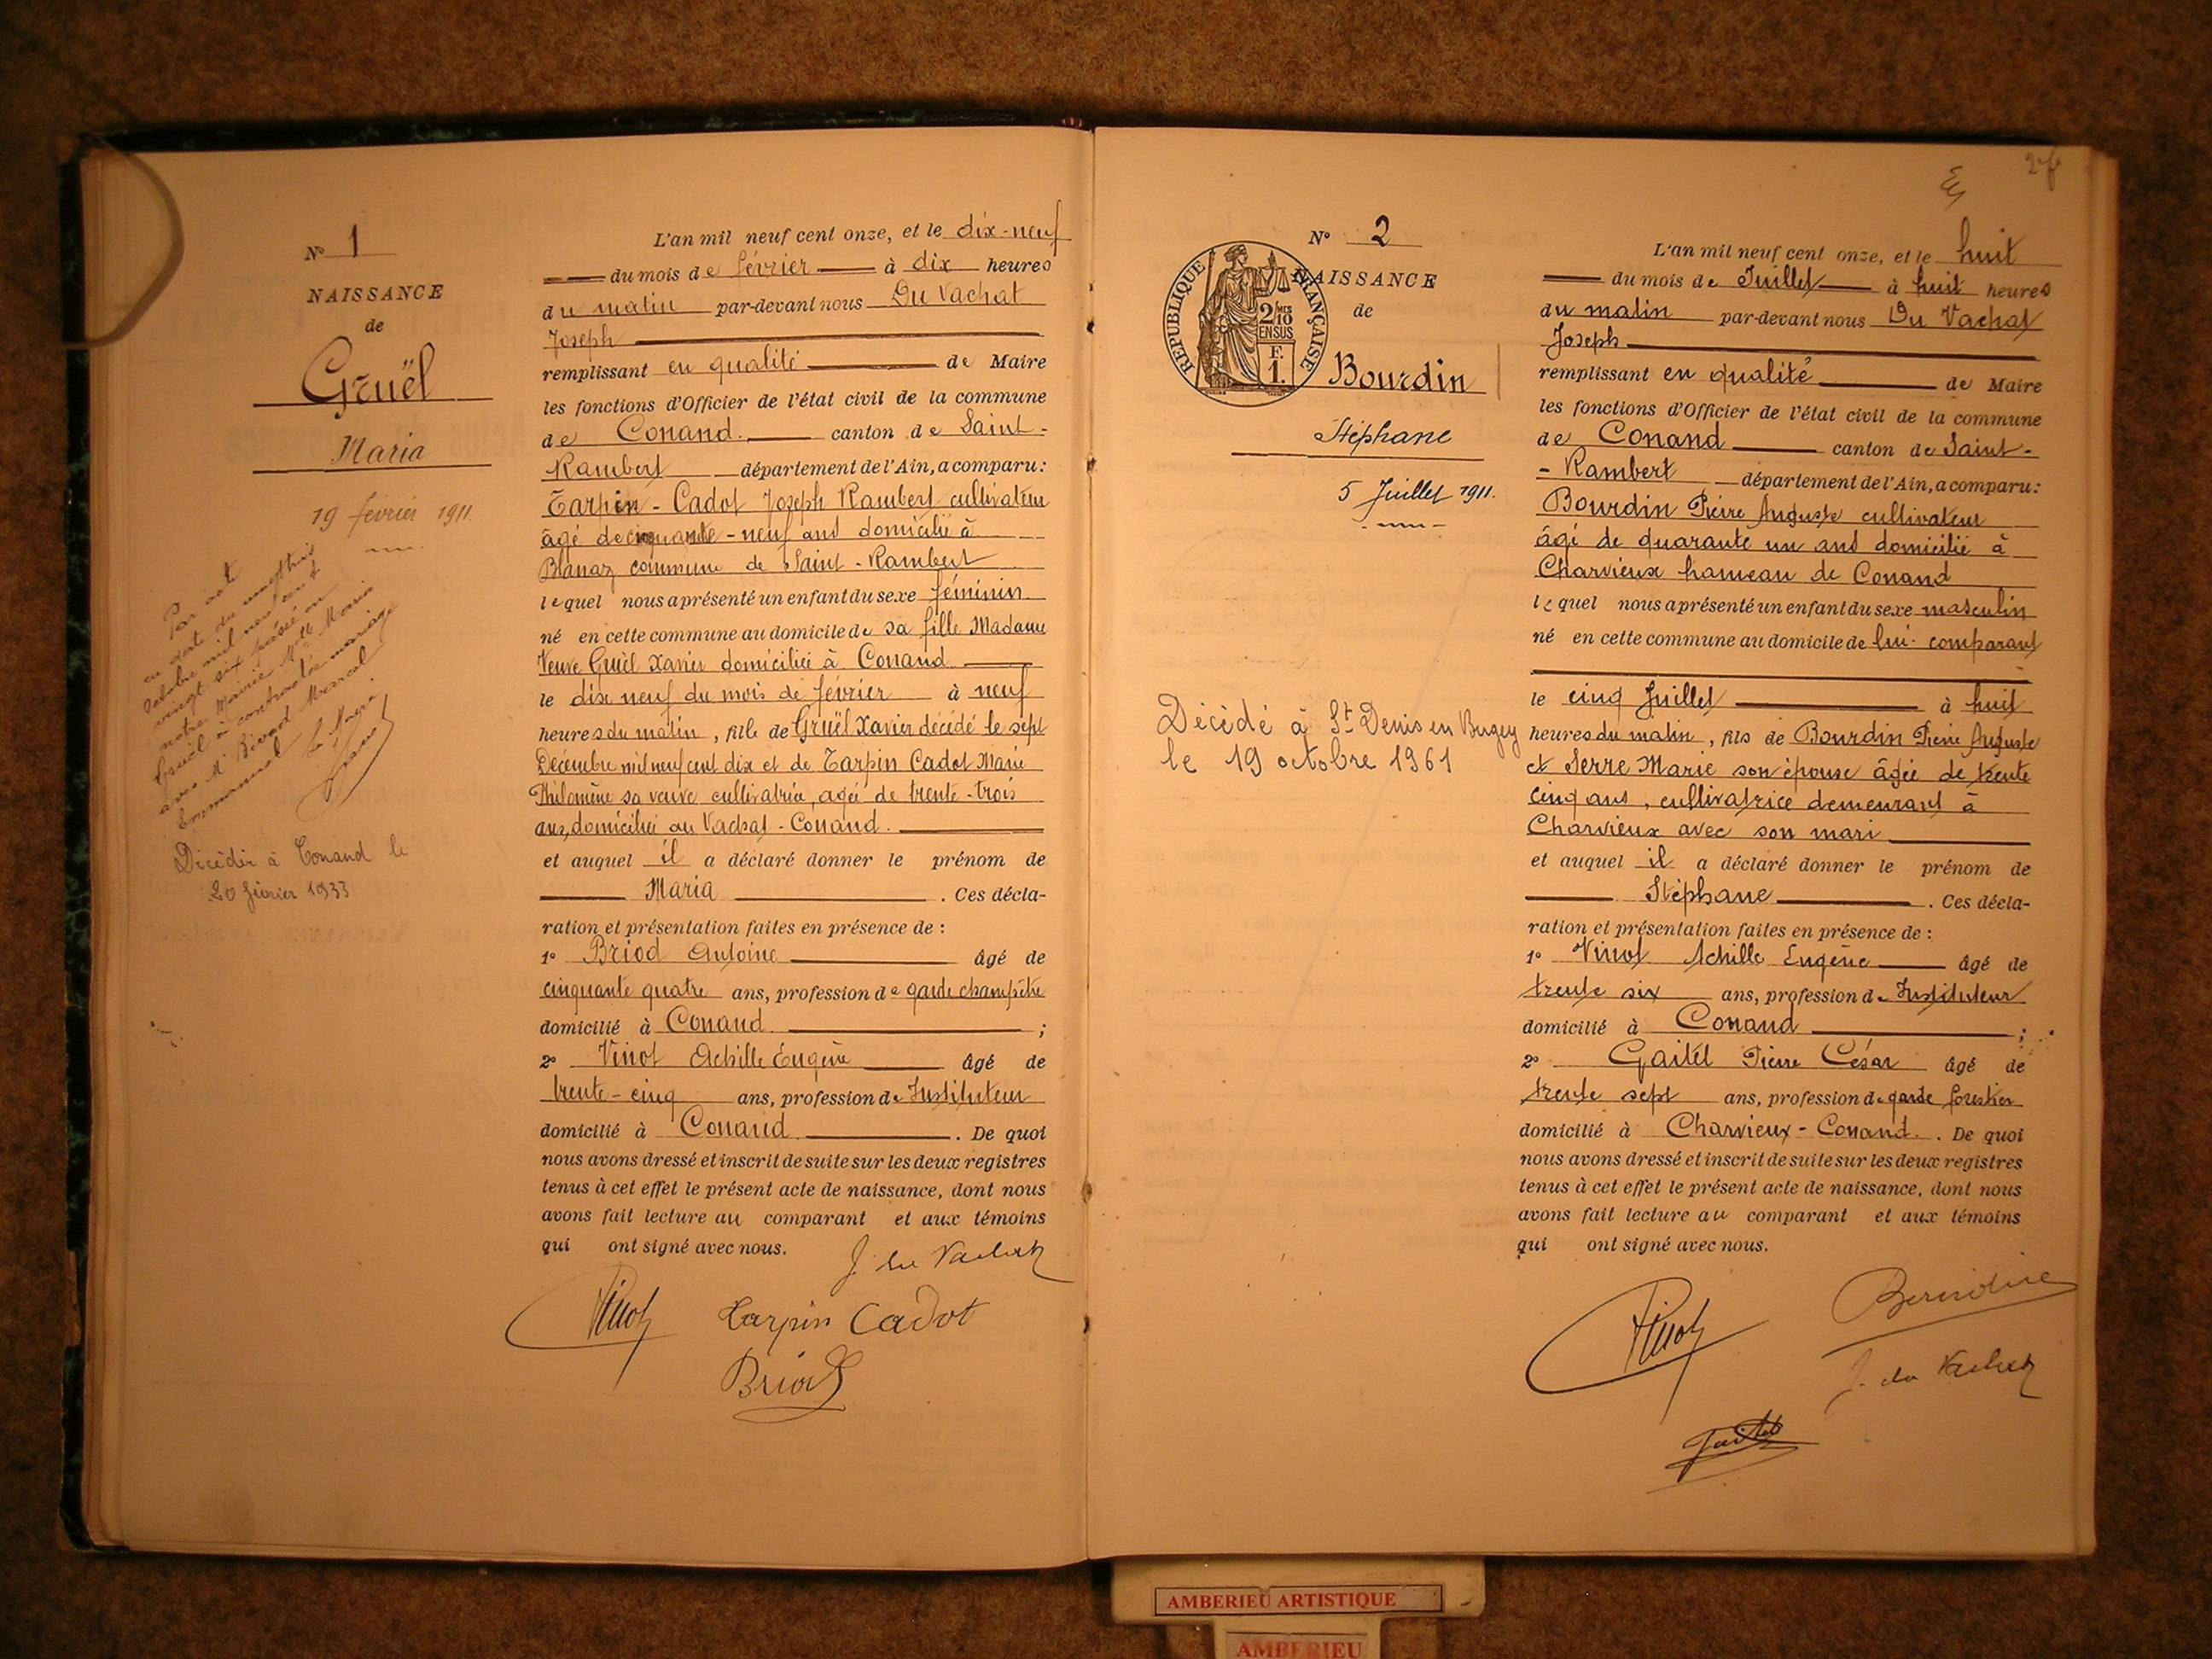 N° 1
NAISSANCE
de
Gruël
Maria
19 février 1911
Par acte
en date du
octobre mil neuf cent
vingt six passé en
notre Mairie Melle Maria
Gruël a contracté mariage
avec Mr Marcel
Emmanuel Le Maire
Décédée à Conand le
20 février 1933
L'an mil neuf cent onze, et le dix-neuf
du mois de février à dix heures
du matin par-devant nous Du Vachat
Joseph
remplissant en qualité de Maire
les fonctions d'Officier de l'état civil de la commune
de Conand. canton de Saint-
Rambert département de l'Ain, a comparu:
Tarpin-Cadot Joseph Rambert cultivateur
âgé de cinquante-neuf ans domicilié à
Blanaz commune de Saint-Rambert
lequel nous a présenté un enfant du sexe féminin
né en cette commune au domicile de sa fille Madame
Veuve Gruël Xavier domiciliée à Conand
le dix neuf du mois de février à neuf
heures du matin, fille de Gruël Xavier décédé le sept
Décembre mil neuf cent dix et de Tarpin Cadot Marie
Philomène sa veuve cultivatrice, agée de trente-trois
ans, domiciliée au Vachat-Conand.
et auquel il a déclaré donner le prénom de
Maria . Ces décla-
ration et présentation faites en présence de :
1° Briod Antoine âgé de
cinquante quatre ans, profession de garde champêtre
domicilié à Conand ;
2° Vinot Achille Eugène âgé de
trente-cinq ans, profession de Instituteur
domicilié à Conand . De quoi
nous avons dressé et inscrit de suite sur les deux registres
tenus à cet effet le présent acte de naissance, dont nous
avons fait lecture au comparant et aux témoins
qui ont signé avec nous.
J. du Vachat
Vinot Tarpin Cadot
Briod
N° 2
REPUBLIQUE FRANÇAISE
2/10 EN SUS
F. 1.
NAISSANCE
de
Bourdin
Stéphane
5 Juillet 1911.
Décédé à St Denis en Bugey
le 19 octobre 1961
L'an mil neuf cent onze, et le huit
du mois de Juillet à huit heures
du matin par-devant nous Du Vachat
Joseph
remplissant en qualité de Maire
les fonctions d'Officier de l'état civil de la commune
de Conand canton de Saint-
-Rambert département de l'Ain, a comparu:
Bourdin Pierre Auguste cultivateur
âgé de quarante un ans domicilié à
Charvieux hameau de Conand
lequel nous a présenté un enfant du sexe masculin
né en cette commune au domicile de lui-comparant
le cinq Juillet à huit
heures du matin, fils de Bourdin Pierre Auguste
et Serre Marie son épouse âgée de trente
cinq ans, cultivatrice demeurant à
Charvieux avec son mari
et auquel il a déclaré donner le prénom de
Stéphane . Ces décla-
ration et présentation faites en présence de :
1° Vinot Achille Eugène âgé de
trente six ans, profession de Instituteur
domicilié à Conand ;
2° Gaitet Pierre César âgé de
trente sept ans, profession de garde forestier
domicilié à Charvieux-Conand. . De quoi
nous avons dressé et inscrit de suite sur les deux registres
tenus à cet effet le présent acte de naissance, dont nous
avons fait lecture au comparant et aux témoins
qui ont signé avec nous.
Vinot Bourdin
J. du Vachat
Gaitet
AMBERIEU ARTISTIQUE
AMBERIEU